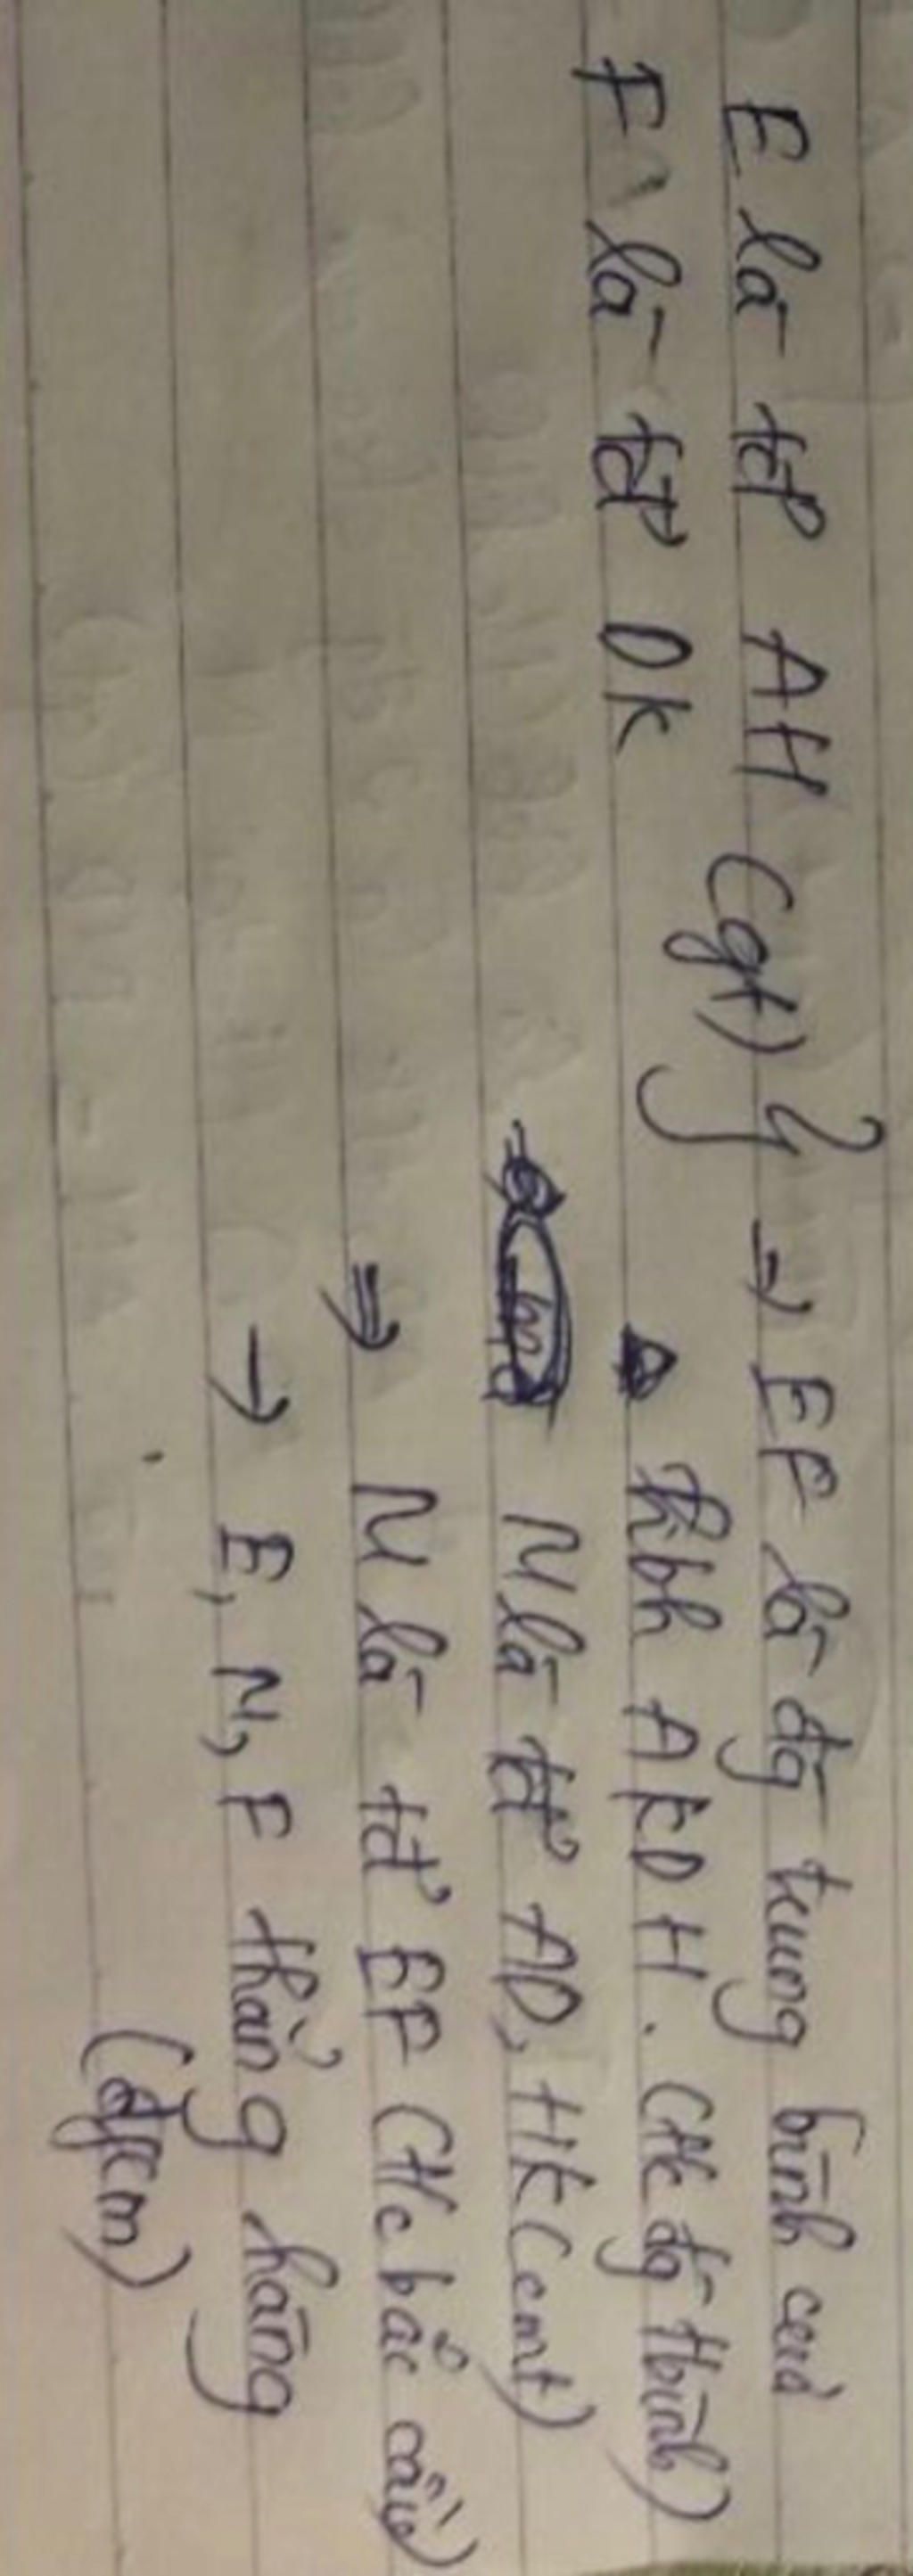 E là tđ' AH (gt) } → EF là đg trung bình của
F là tđ' DK
hbh AKDH. (tc đg tbình)
N là tđ' AD, HK (cmt)
⇒ N là tđ' EF (t/c bắc cầu)
→ E, N, F thẳng hàng
(đpcm)